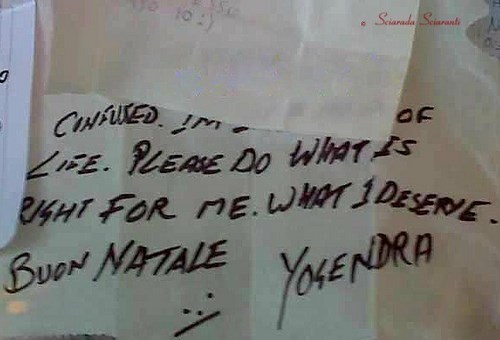 10:)
© Sciarada Sciaranti
CONFUSED. I'M OF
LIFE. PLEASE DO WHAT IS
RIGHT FOR ME. WHAT I DESERVE.
BUON NATALE YOGENDRA
:)